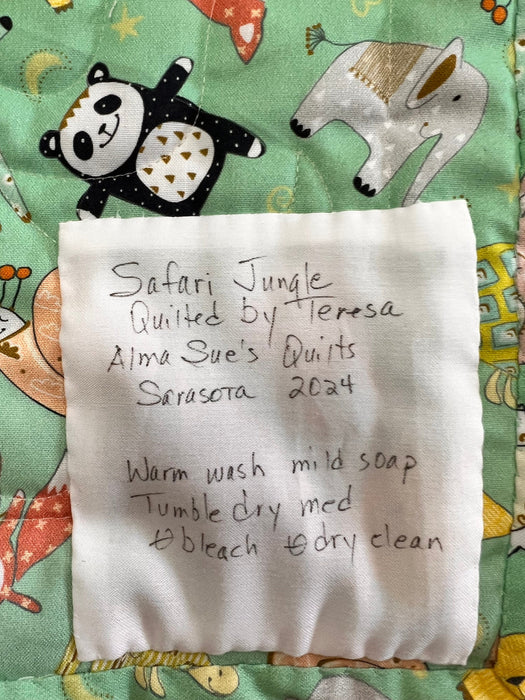 Safari Jungle
Quilted by Teresa
Alma Sue's Quilts
Sarasota 2024
Warm wash mild soap
Tumble dry med
⦵ bleach ⦵ dry clean